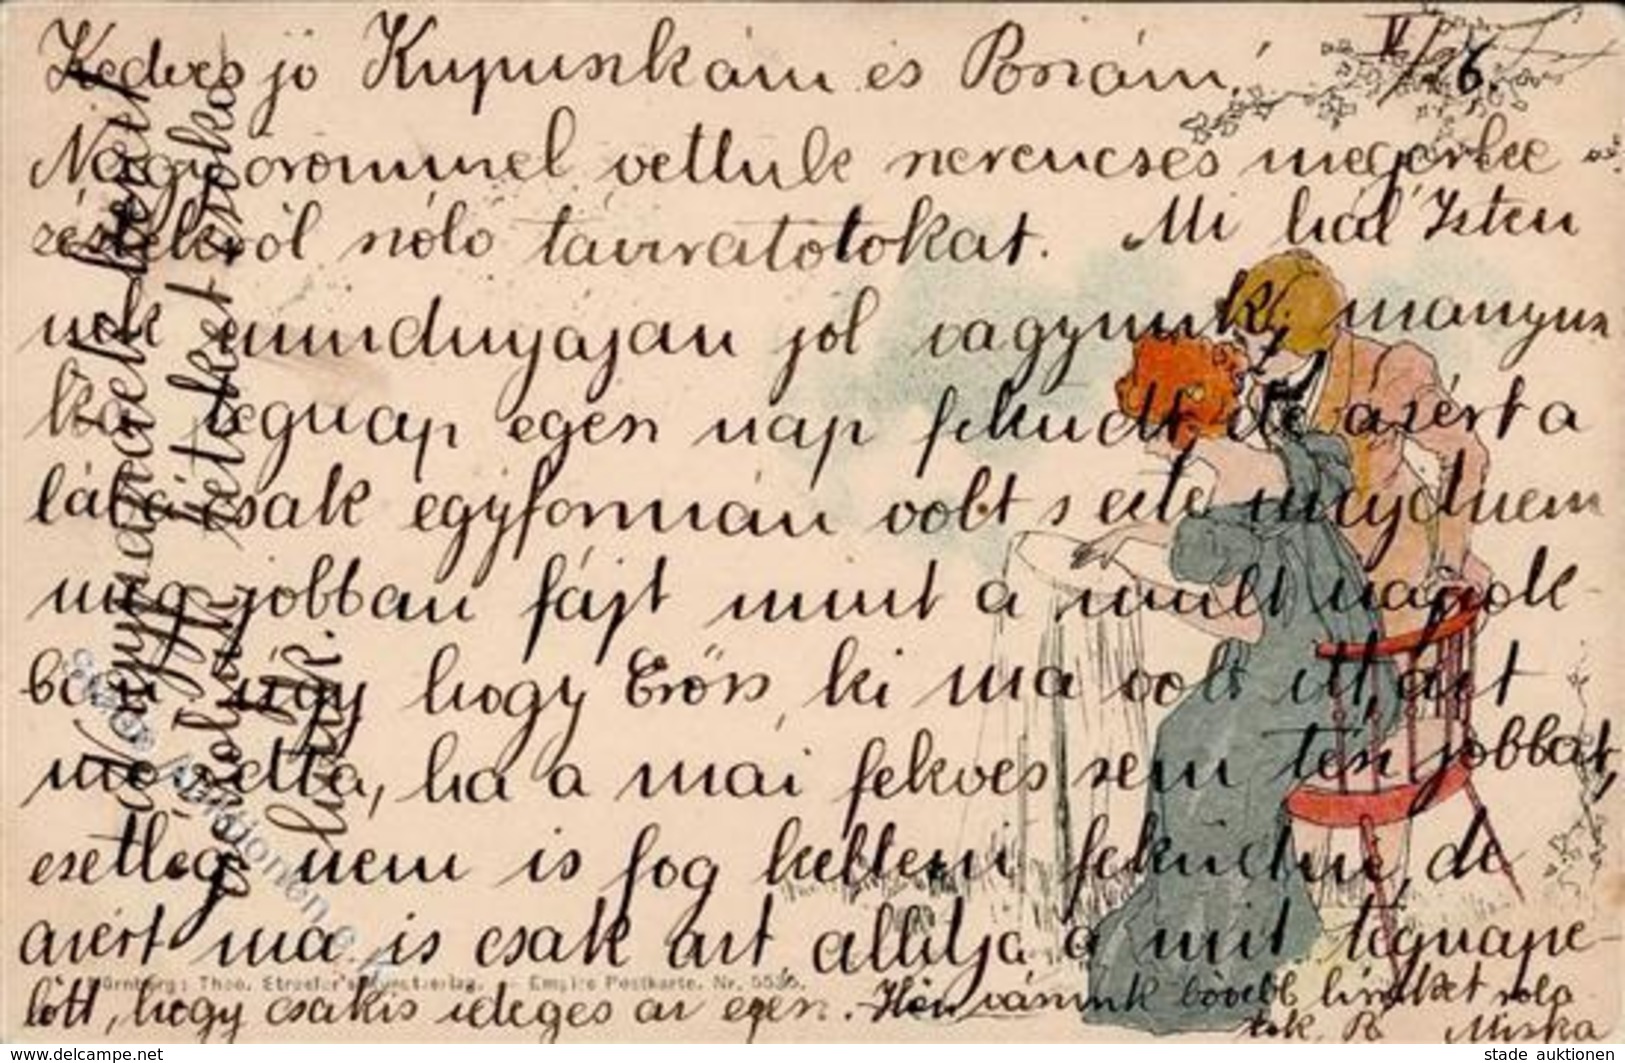 Kedves jó Kupuszkám és Rózám! V/26.
Nagy örömmel vettük szerencsés megérke
zéstekről szóló táviratotokat. Mi hál' Isten
nek mindnyájan jól vagyunk, manyusz
ka tegnap egész nap feküdt, de azért a
lába csak egyformán volt s este majdnem
még jobban fájt mint a mult napok-
ban úgy hogy Erős, ki ma volt itt, azt
mondta, ha a mai fekvés sem tesz jobbat,
esetleg nem is fog kelleni feküdni, de
azért ma is csak azt állítja a mit tegnape-
lőtt, hogy csakis ideges az egész. Hőn várunk bővebb híreket rólatok. R Miska
Nürnberg: Theo. Stroefer's Kunstverlag. — Empire Postkarte. Nr. 5535.
Nagymamáék kezeit
titeket csókol
delcampe.net
stade auktionen